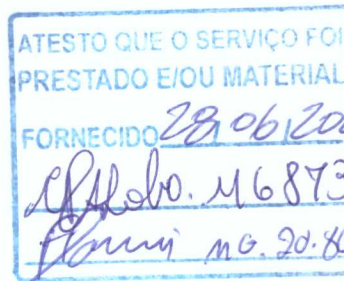 ATESTO QUE O SERVIÇO FOI
PRESTADO E/OU MATERIAL
FORNECIDO 28,06,20
M6873
MG. 20.8